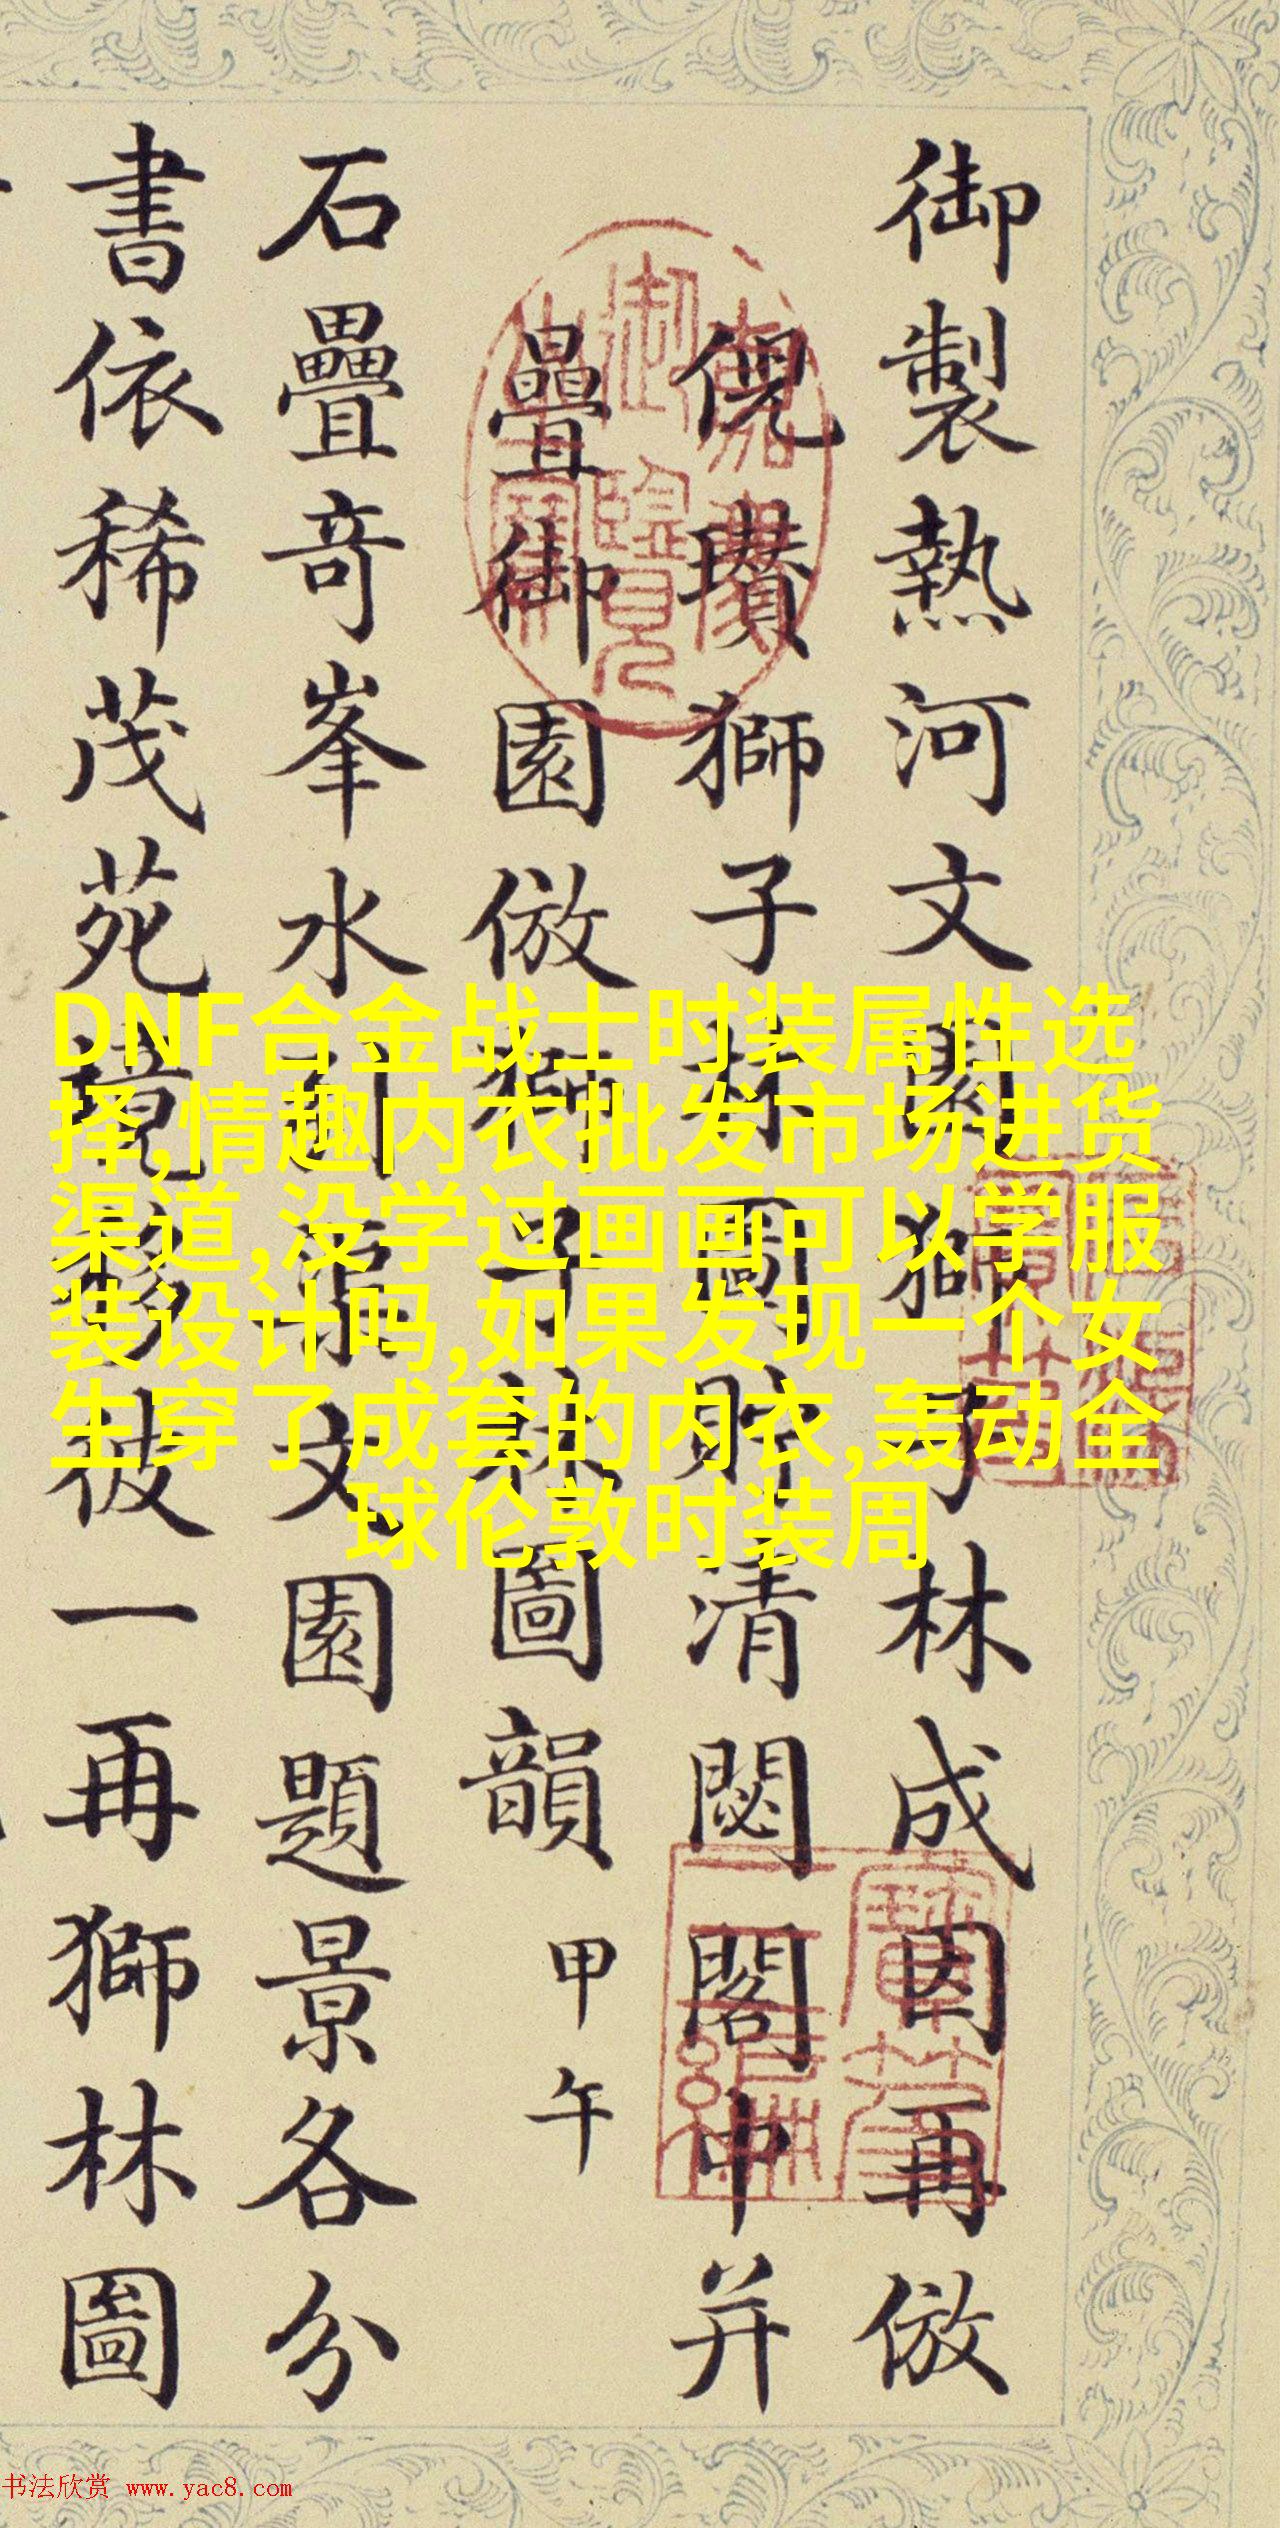 御製熱河文園獅子林成因再倣
倪瓚獅子林圖貯清閟閣中并
疊御園倣獅子林圖韻 甲午
石疊奇峯水文園題景各分
書依稀茂苑境彼一再獅林圖
DNF合金战士时装属性选
择,情趣内衣批发市场进货
渠道,没学过画画可以学服
装设计吗,如果发现一个女
生穿了成套的内衣,轰动全
球伦敦时装周
书法欣赏 www.yac8.com